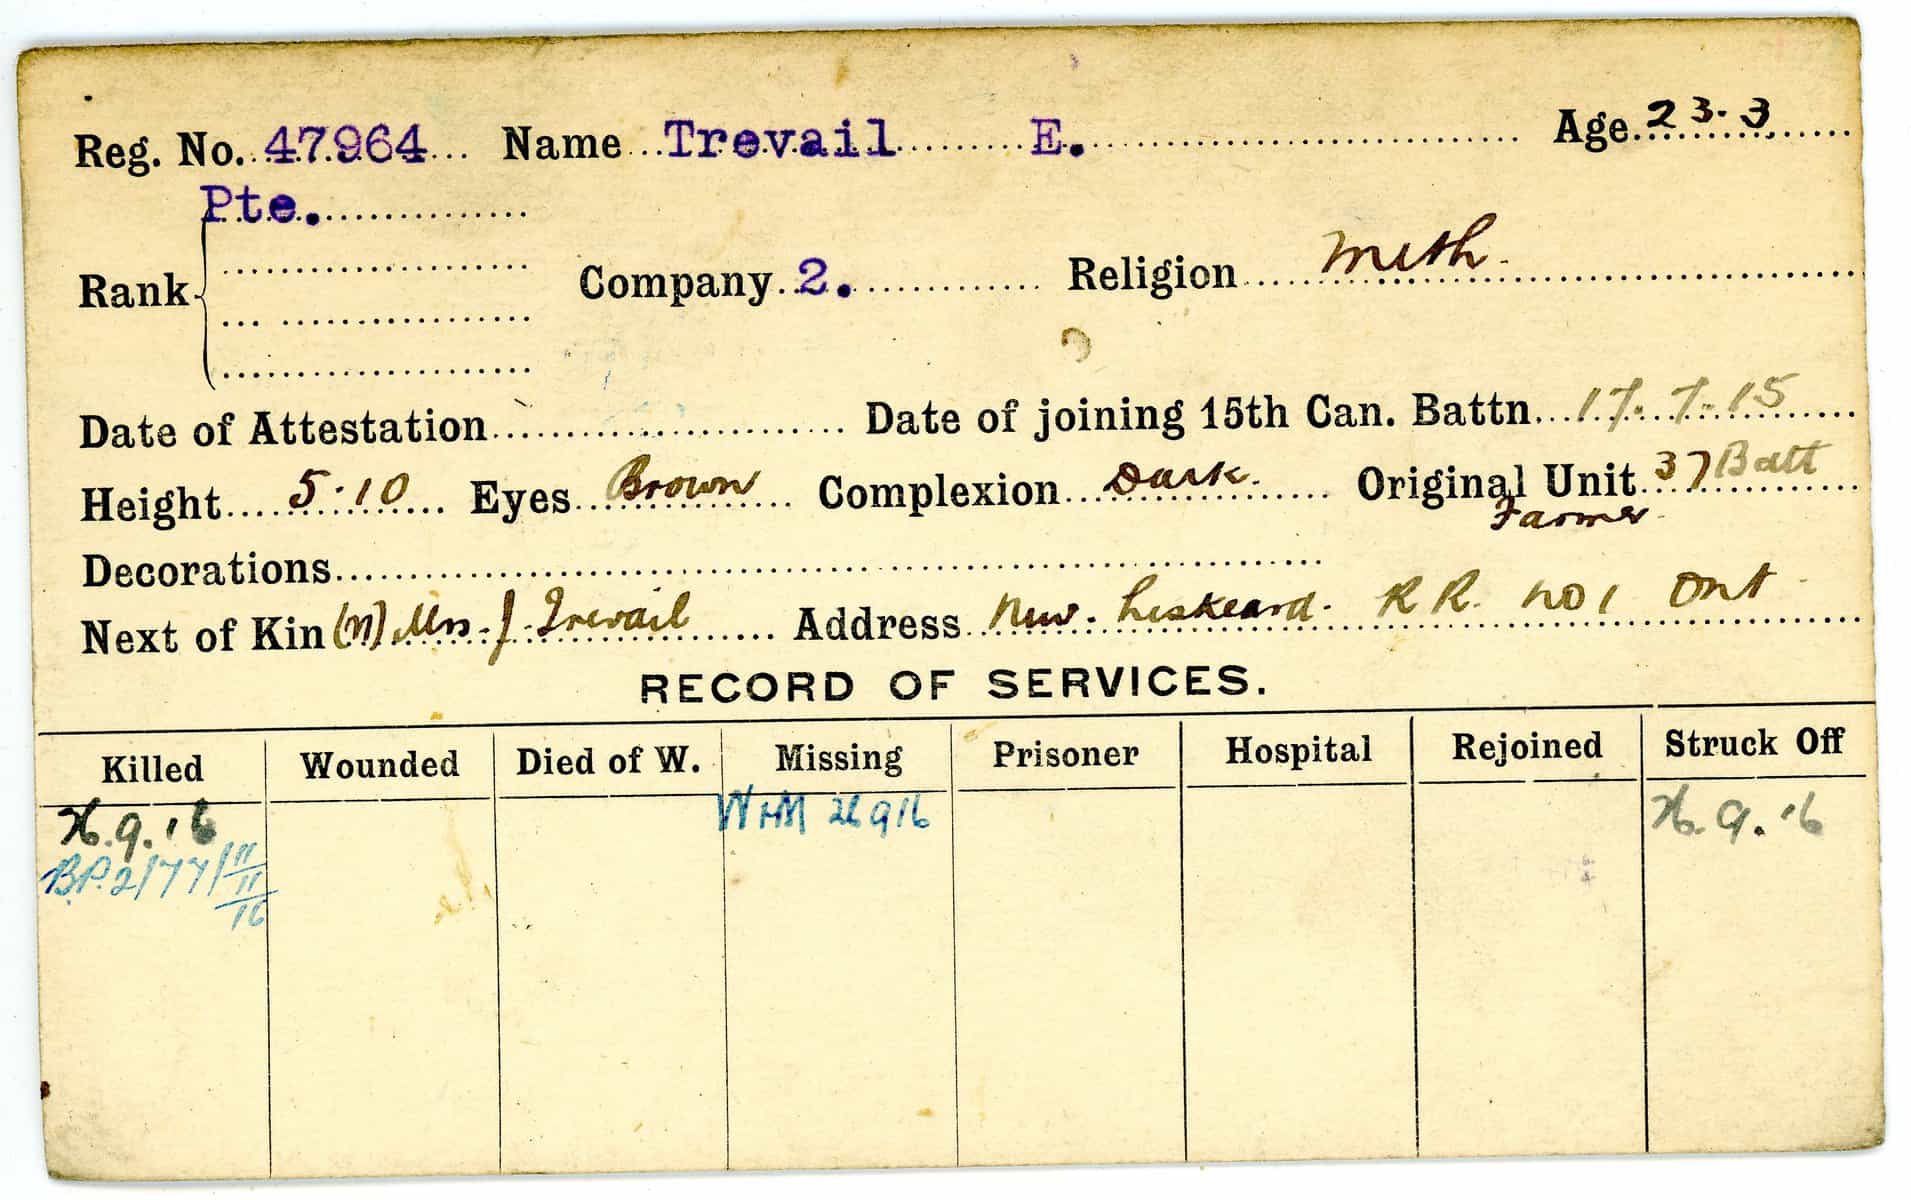 Reg. No. 47964 Name Trevail E. Age 23.3
Pte.
Rank Company 2. Religion Meth
Date of Attestation Date of joining 15th Can. Battn. 17.7.15
Height 5.10 Eyes Brown Complexion Dark. Original Unit 37 Batt
Farmer
Decorations
Next of Kin (M) Mrs. J. Trevail Address New. Liskeard. R R. No 1 Ont
RECORD OF SERVICES.
Killed Wounded Died of W. Missing Prisoner Hospital Rejoined Struck Off
26.9.16 W & M 26 9 16 26.9.16
B.P. 2/77/11/11/16